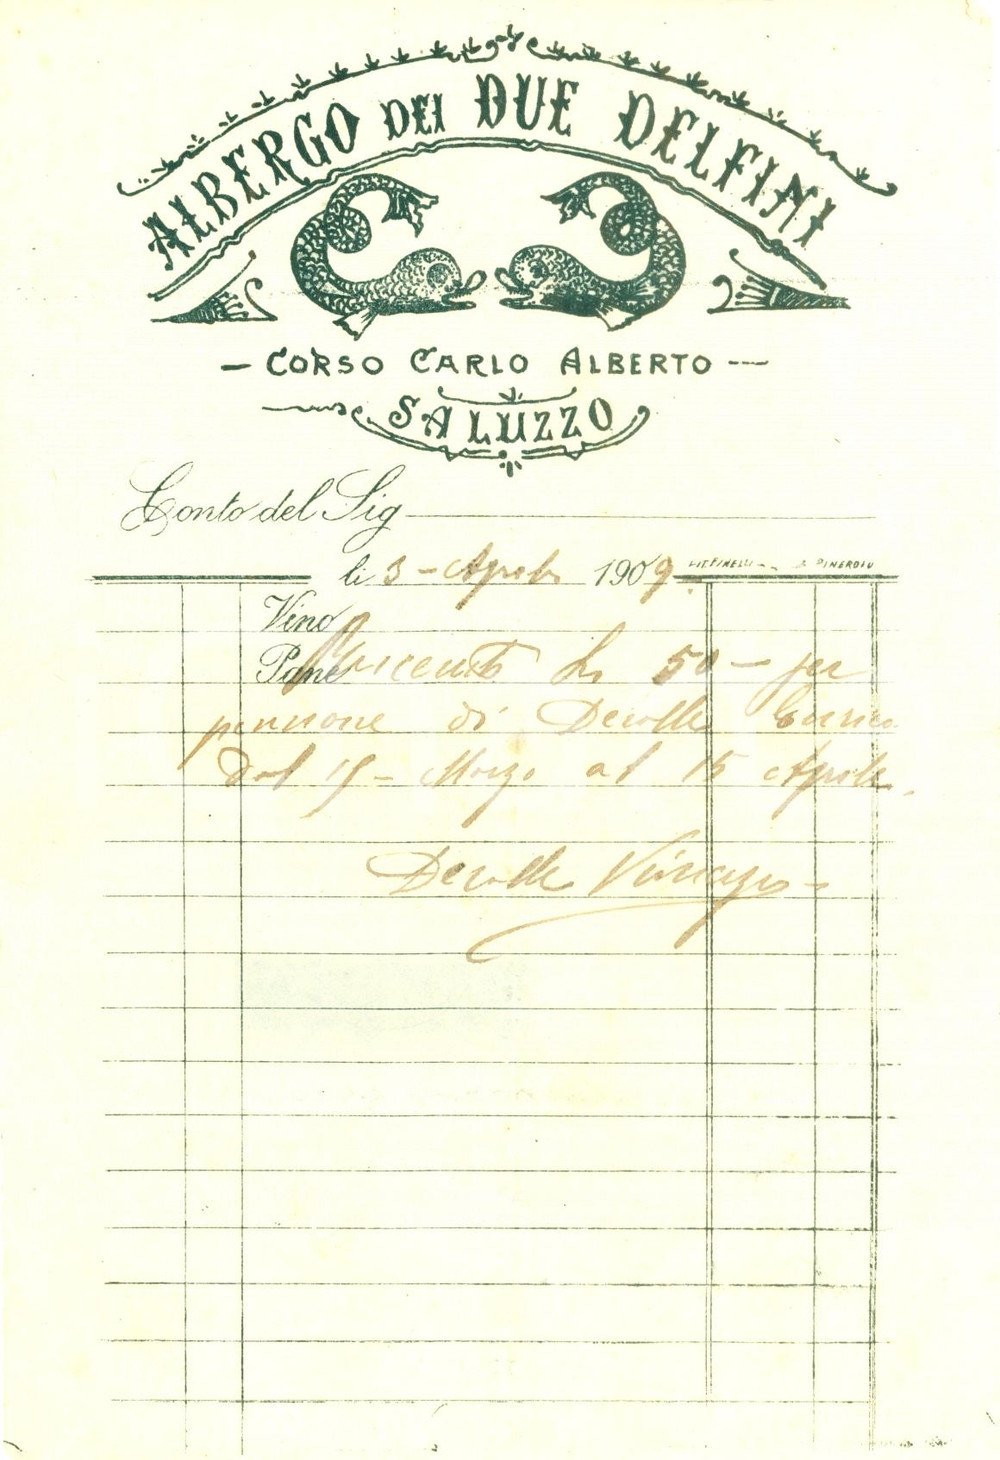 ALBERGO DEI DUE DELFINI
— CORSO CARLO ALBERTO —
SALUZZO
Conto del Sig
li 3 - Aprile 1909
LIT. PINELLI PINEROLO
Vino
Pane
Ricevuto L. 50 - per
pensione di Derolle Enrico
dal 15 - Marzo al 15 Aprile.
Derolle